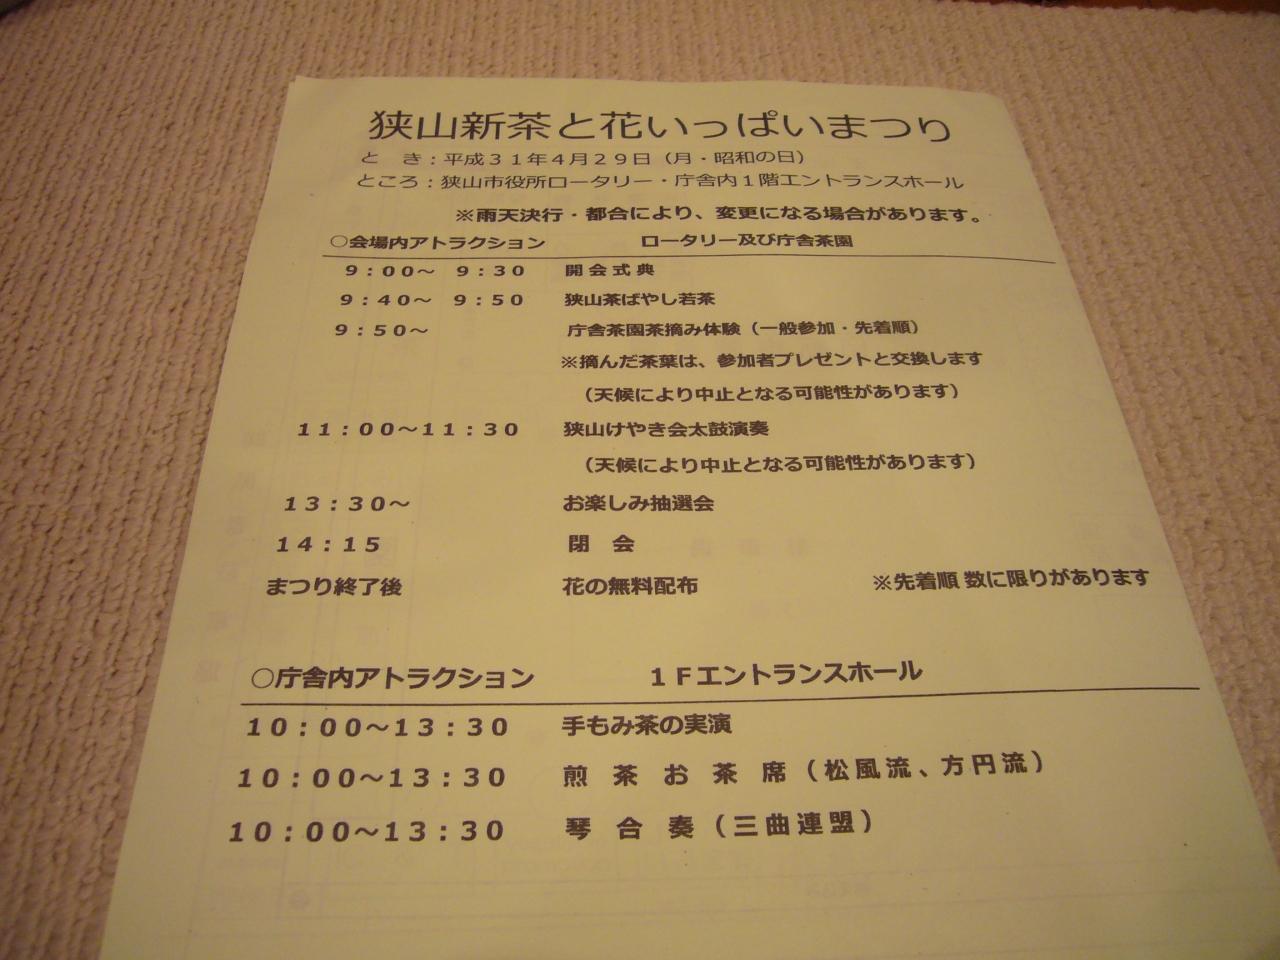 狭山新茶と花いっぱいまつり
と　き：平成３１年４月２９日（月・昭和の日）
ところ：狭山市役所ロータリー・庁舎内１階エントランスホール
※雨天決行・都合により、変更になる場合があります。
○会場内アトラクション　　　ロータリー及び庁舎茶園
９：００～　９：３０　　開会式典
９：４０～　９：５０　　狭山茶ばやし若茶
９：５０～　　庁舎茶園茶摘み体験（一般参加・先着順）
※摘んだ茶葉は、参加者プレゼントと交換します
（天候により中止となる可能性があります）
１１：００～１１：３０　　狭山けやき会太鼓演奏
（天候により中止となる可能性があります）
１３：３０～　　お楽しみ抽選会
１４：１５　　閉　会
まつり終了後　　花の無料配布　　※先着順 数に限りがあります
○庁舎内アトラクション　　　１Ｆエントランスホール
１０：００～１３：３０　　手もみ茶の実演
１０：００～１３：３０　　煎　茶　お　茶　席（松風流、方円流）
１０：００～１３：３０　　琴　合　奏（三曲連盟）